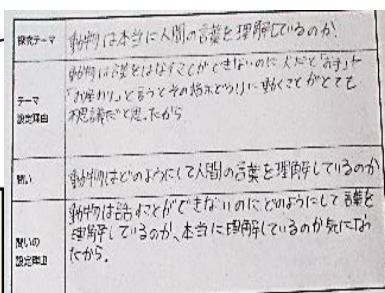 探究テーマ
動物は本当に人間の言葉を理解しているのか
テーマ
設定理由
動物は言葉をはなすことができないのに人だと「お手」や
「お座り」と言うとその指示どうりに動くことがとても
不思議だと思ったから
問い
動物はどのようにして人間の言葉を理解しているのか
問いの
設定理由
動物は話すことができないのにどのようにして言葉を
理解しているのか、本当に理解しているのか気になっ
たから.